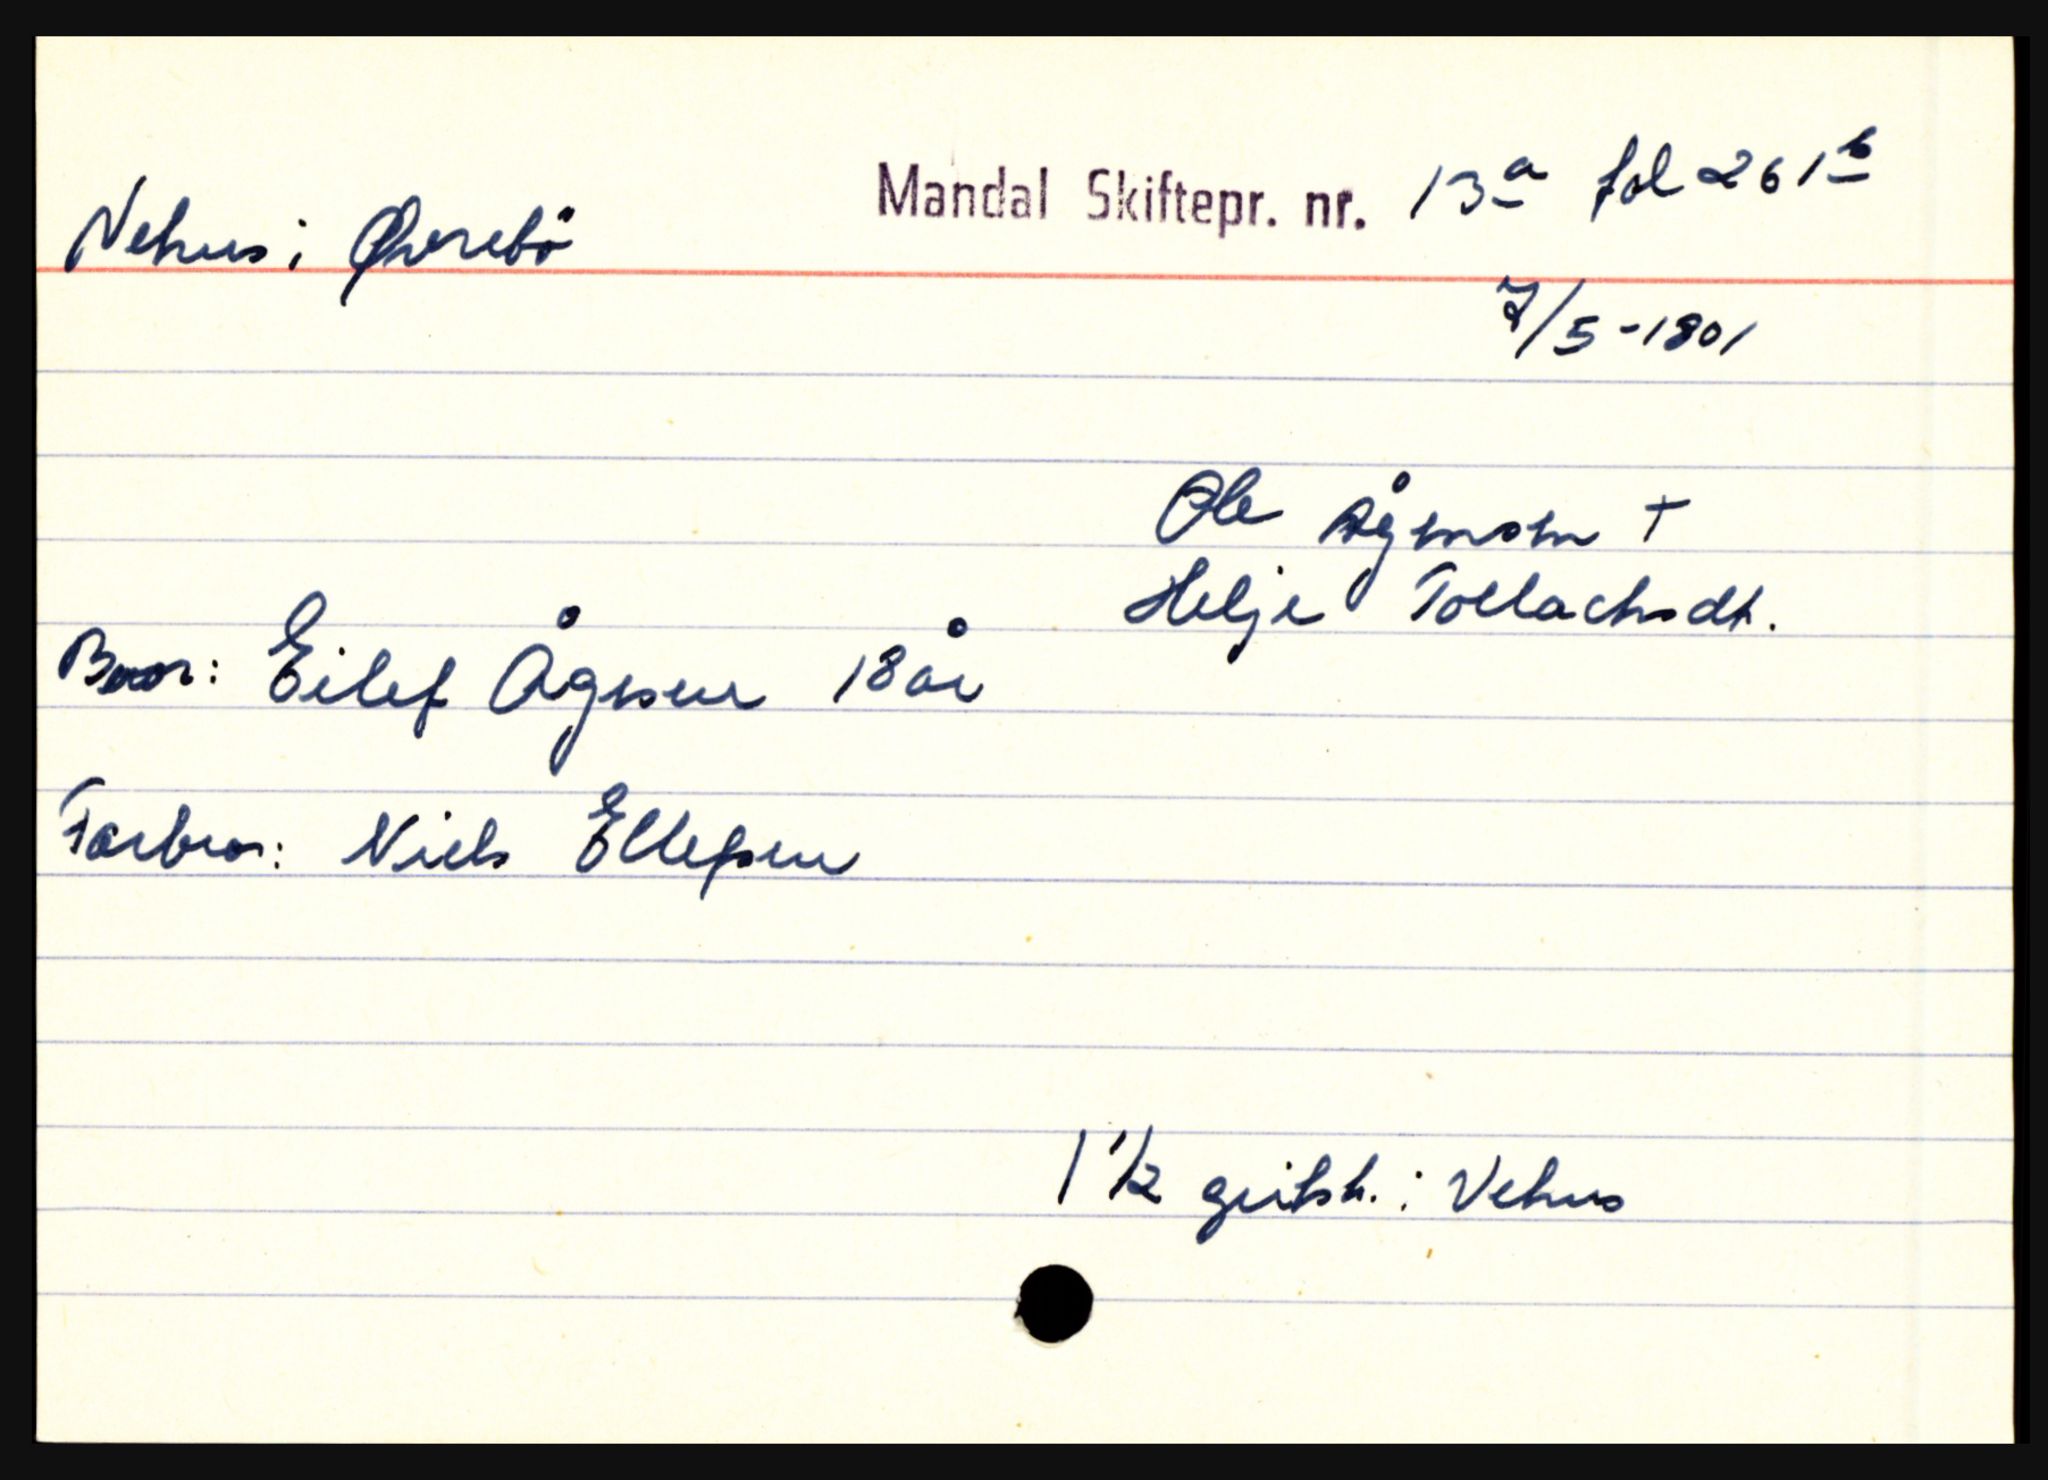 Vehus i Øvrebö
Mandal Skiftepr. nr. 13a fol 261b
7/5-1801
Ole Ågensen +
Helje Tollachsdt.
Bror: Eilef Ågesen 18 år
Farbror: Niels Ellefsen
1 1/2 gritsh. i Vehus